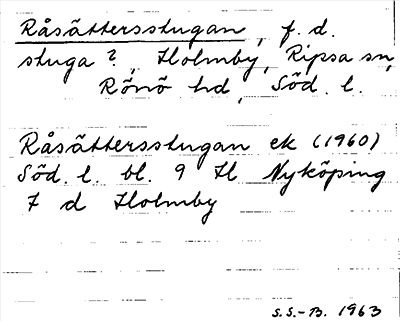 Råsättersstugan, f. d.
stuga?, Holmby, Ripsa sn,
Rönö hd, Söd. l.
Råsättersstugan ek (1960)
Söd. l. bl. 9 H Nyköping
7 d Holmby
S.S.-B. 1963